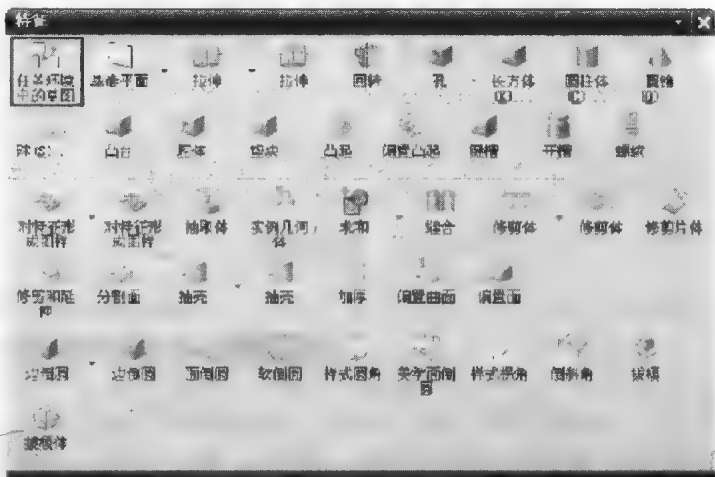 特征
任务环境中的草图 基准平面 拉伸 拉伸 回转 孔 长方体 圆柱体 圆锥
球 凸台 腔体 垫块 凸起 偏置凸起 键槽 开槽 螺纹
对特征形成图样 对特征形成图样 抽取体 实例几何体 求和 缝合 修剪体 修剪体 修剪片体
修剪和延伸 分割面 抽壳 抽壳 加厚 偏置曲面 偏置面
边倒圆 边倒圆 面倒圆 软倒圆 样式圆角 美学面倒圆 样式拐角 倒斜角 拔模
拔模体